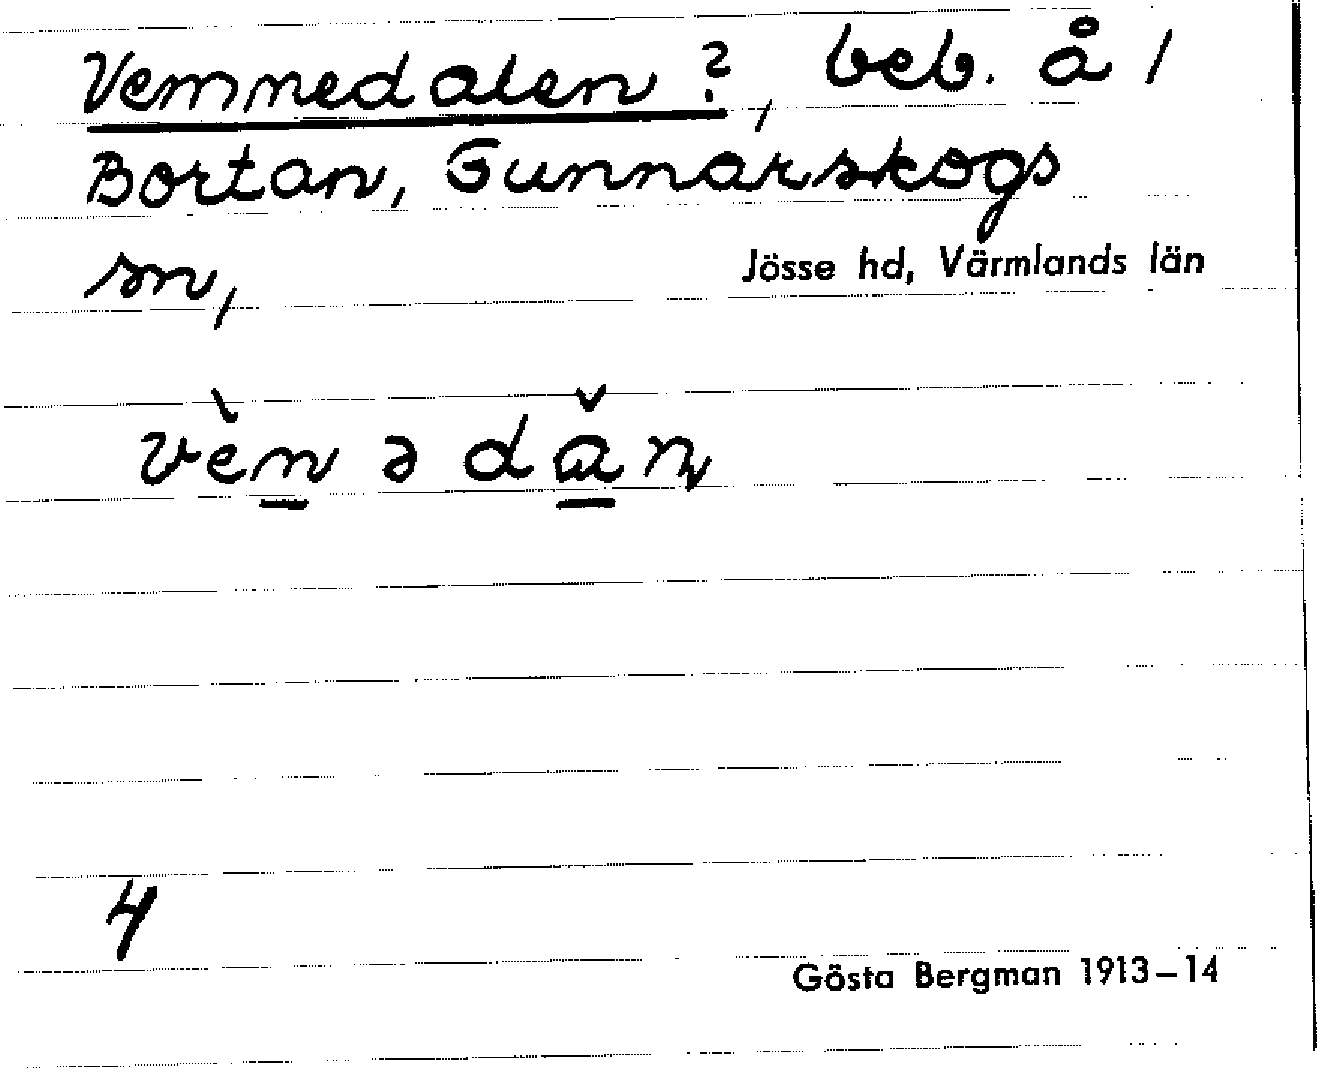 Vemmedalen ?, beb. å 1
Bortan, Gunnarskogs
sn,
Jösse hd, Värmlands län
vèn ə dǎn
4
Gösta Bergman 1913–14